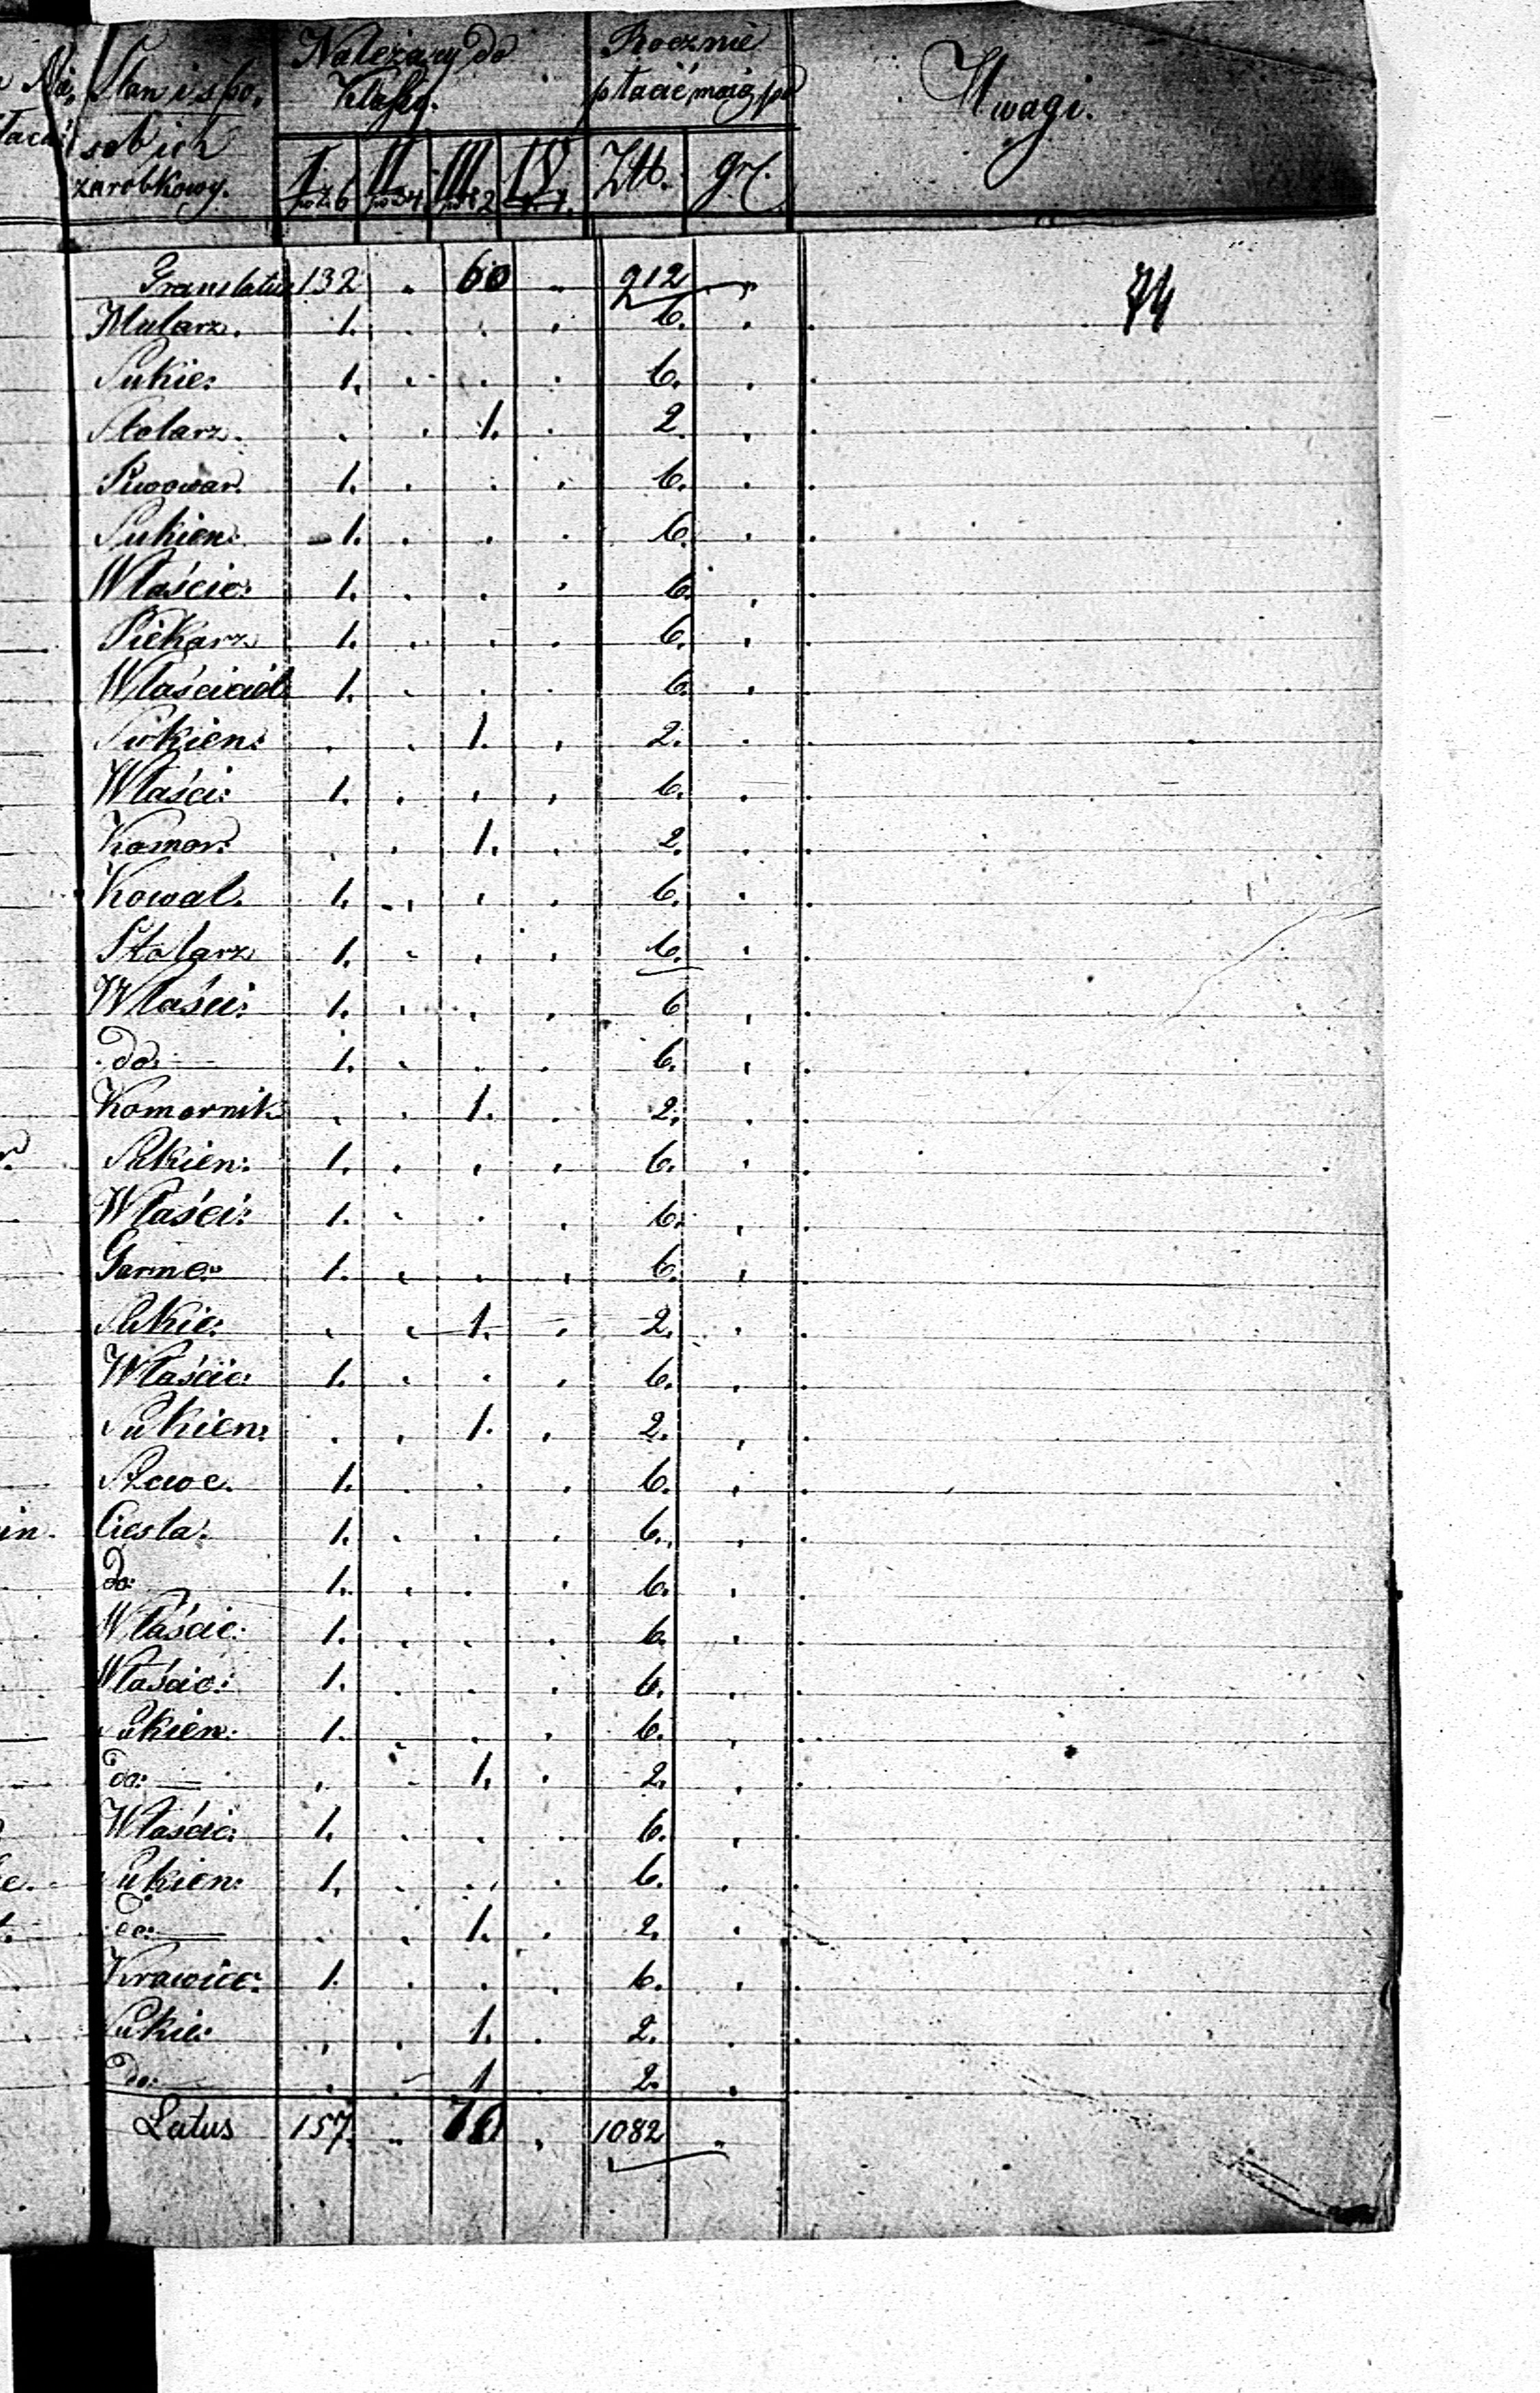 Stan i spo.
sobich
zarobkowy.
Należący do
Klassy.
Rocznie
płacić mają po
Uwagi.
I II III IV Złt. gr.
po zł 6 po zł 4 po zł 2
Translatus 132 " 60 " 912 "
74
Mularz. 1. . . . 6. . .
Sukie: 1. . . . 6. . .
Stolarz. . . 1. . 2. . .
Piwowar. 1. . . . 6. . .
Sukien: 1. . . . 6. . .
Właścic: 1. . . . 6. . .
Piekarz 1. . . . 6. . .
Właściciel 1. . . . 6. . .
Sukien: . . 1. . 2. . .
Właści: 1. . . . 6. . .
Komor: . . 1. . 2. . .
Kowal. 1. . . . 6. . .
Stolarz 1. . . . 6. . .
Właści: 1. . . . 6 . .
do: 1. . . . 6. . .
Komornik . . 1. . 2. . .
Sukien: 1. . . . 6. . .
Właści: 1. . . . 6. . .
Garnc: 1. . . . 6. . .
Sukie: . . 1. . 2. . .
Właścic: 1. . . . 6. . .
Sukien: . . 1. . 2. . .
Szewc. 1. . . . 6. . .
Ciesla. 1. . . . 6. . .
do: 1. . . . 6. . .
Właścic: 1. . . . 6. . .
Właścic: 1. . . . 6. . .
Sukien: 1. . . . 6. . .
do: . . 1. . 2. . .
Właścic: 1. . . . 6. . .
Sukien: 1. . . . 6. . .
do: . . 1. . 2. . .
Krawiec: 1. . . . 6. . .
Sukie: . . 1. . 2. . .
do: . . 1 . 2. . .
Latus 157. " 70 " 1082 "